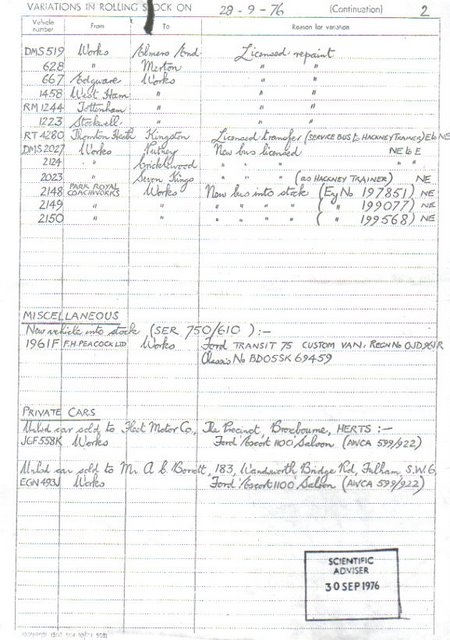 VARIATIONS IN ROLLING STOCK ON 28 - 9 - 76 (Continuation) 2
Vehicle number From To Reason for variation
DMS 519 Works Almers End Licensed repaint
628 " Merton " "
667 Edgware Works " "
1458 West Ham " " "
RM 1244 Tottenham " " "
1223 Stockwell " " "
RT 4280 Thornton Heath Kingston Licensed transfer (SERVICE BUS to HACKNEY TRAINER) E to NE
DMS 2027 Works Putney New bus licensed NE to E
2124 " Cricklewood " " " " "
2023 " Seven Kings " " " (as HACKNEY TRAINER) NE
2148 PARK ROYAL COACHWORKS Works New bus into stock (Eg No 197851) NE
2149 " " " " " " ( " 199077) NE
2150 " " " " " " ( " 199568) NE
MISCELLANEOUS
New vehicle into stock (SER 750/610) :-
1961F F.H. PEACOCK LTD Works Ford TRANSIT 75 CUSTOM VAN. REGN No OJD 961R
Chassis No BD05SK 69459
PRIVATE CARS
Unlsd car sold to Fleet Motor Co, The Precinct, Broxbourne, HERTS :-
JGF 558K Works Ford Escort 1100 Saloon (AWCA 599/922)
Unlsd car sold to Mr A C Borrett, 183, Wandsworth Bridge Rd, Fulham, S.W.6,
EGN 493J Works Ford Escort 1100 Saloon (AWCA 599/922)
SCIENTIFIC
ADVISER
30 SEP 1976